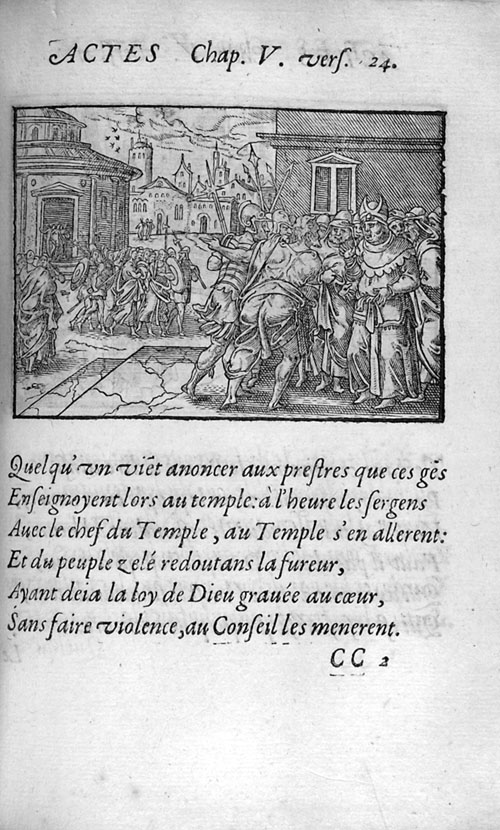 ACTES Chap. V. vers. 24.
Quelqu'vn viẽt anoncer aux prestres que ces gẽs
Enseignoyent lors au temple: à l'heure les sergens
Auec le chef du Temple, au Temple s'en allerent:
Et du peuple zelé redoutans la fureur,
Ayant deia la loy de Dieu grauée au cœur,
Sans faire violence, au Conseil les menerent.
CC 2